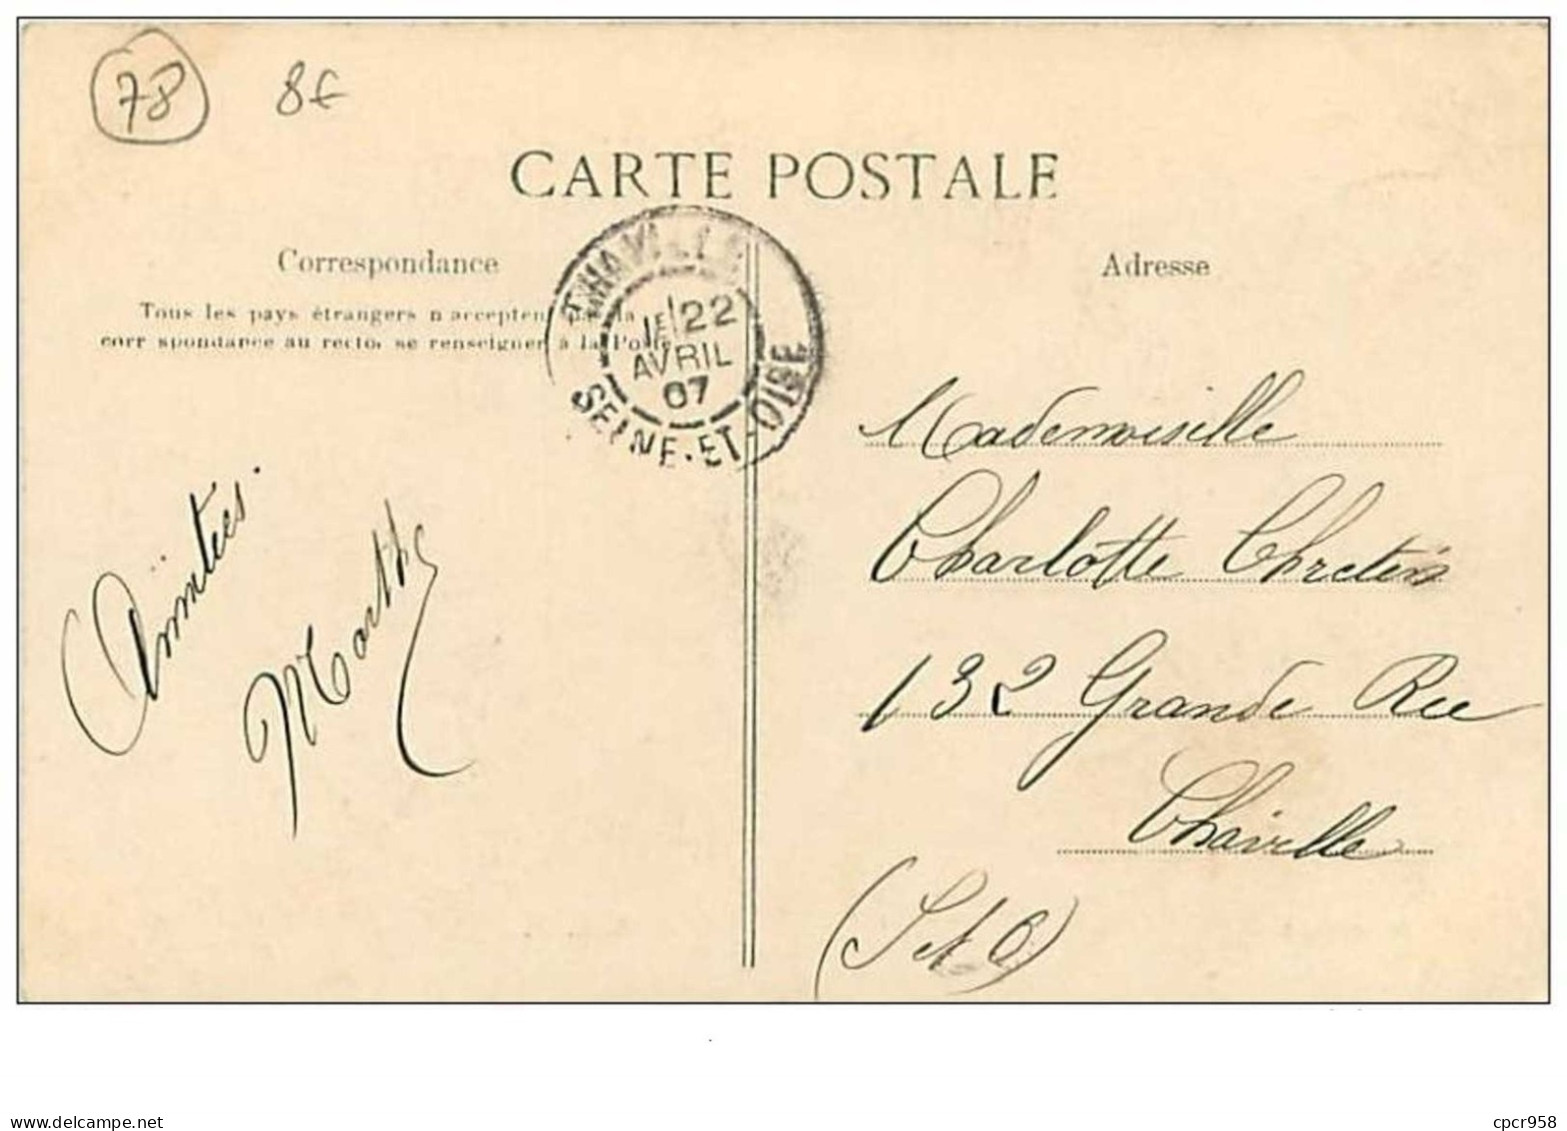 78 8€
CARTE POSTALE
Correspondance
Tous les pays étrangers n'acceptent pas la
correspondance au recto, se renseigner à la Poste
CHAVILLE
1E 22
AVRIL
07
SEINE-ET-OISE
Adresse
Mademoiselle
Charlotte Chretien
132 Grande Rue
Chaville
(S et O)
Amitiés.
Marthe
www.delcampe.net
cpcr958